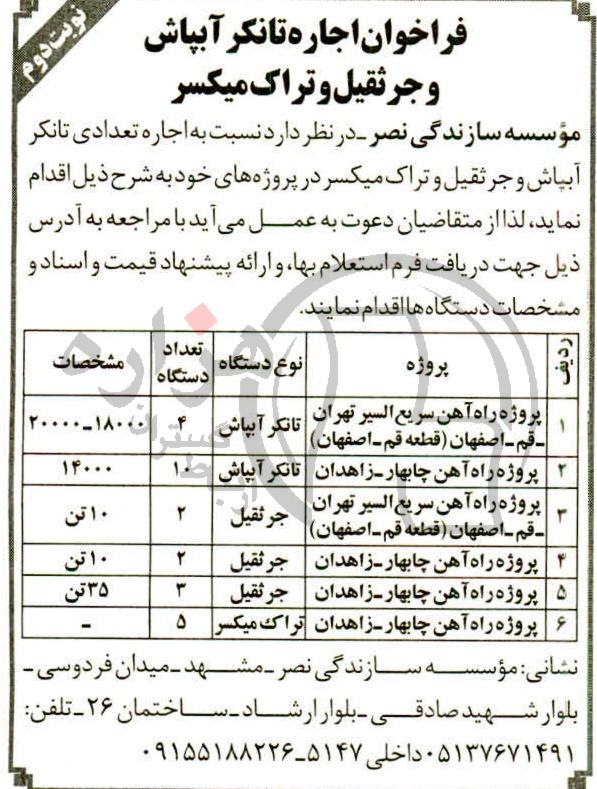 نوبت دوم
فراخوان اجاره تانکر آبپاش
و جرثقیل و تراک میکسر
مؤسسه سازندگی نصر ـ در نظر دارد نسبت به اجاره تعدادی تانکر
آبپاش و جرثقیل و تراک میکسر در پروژه‌های خود به شرح ذیل اقدام
نماید، لذا از متقاضیان دعوت به عمـــل می‌آید با مراجعه به آدرس
ذیل جهت دریافت فرم استعلام بها، و ارائه پیشنهاد قیمت و اسناد و
مشخصات دستگاه‌ها اقدام نمایند.
ردیف پروژه نوع دستگاه تعداد دستگاه مشخصات
۱ پروژه راه آهن سریع السیر تهران ـ قم ـ اصفهان (قطعه قم ـ اصفهان) تانکر آبپاش ۴ ۱۸۰۰۰ـ۲۰۰۰۰
۲ پروژه راه آهن چابهار ـ زاهدان تانکر آبپاش ۱۰ ۱۴۰۰۰
۳ پروژه راه آهن سریع السیر تهران ـ قم ـ اصفهان (قطعه قم ـ اصفهان) جرثقیل ۲ ۱۰ تن
۴ پروژه راه آهن چابهار ـ زاهدان جرثقیل ۲ ۱۰ تن
۵ پروژه راه آهن چابهار ـ زاهدان جرثقیل ۳ ۳۵ تن
۶ پروژه راه آهن چابهار ـ زاهدان تراک میکسر ۵ ـ
نشانی: مؤسســـه ســـازندگی نصر ـ مشـــهد ـ میدان فردوسی ـ
بلوار شـــهید صادقـــی ـ بلوار ارشـــاد ـ ســـاختمان ۲۶ ـ تلفن:
۰۵۱۳۷۶۷۱۴۹۱ داخلی ۵۱۴۷ ـ ۰۹۱۵۵۱۸۸۲۲۶
هزاره
گستران